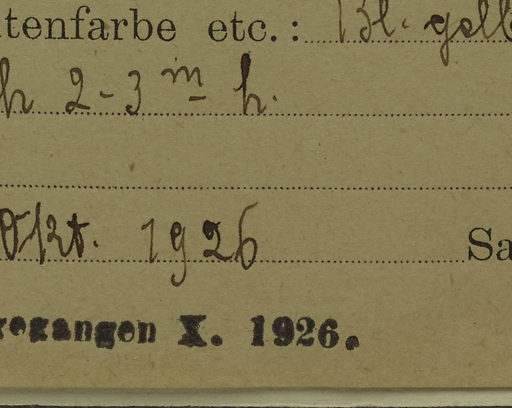 tenfarbe etc.: Bl. gelb
h 2-3 m h.
Okt. 1926 Sa
egangen X. 1926.